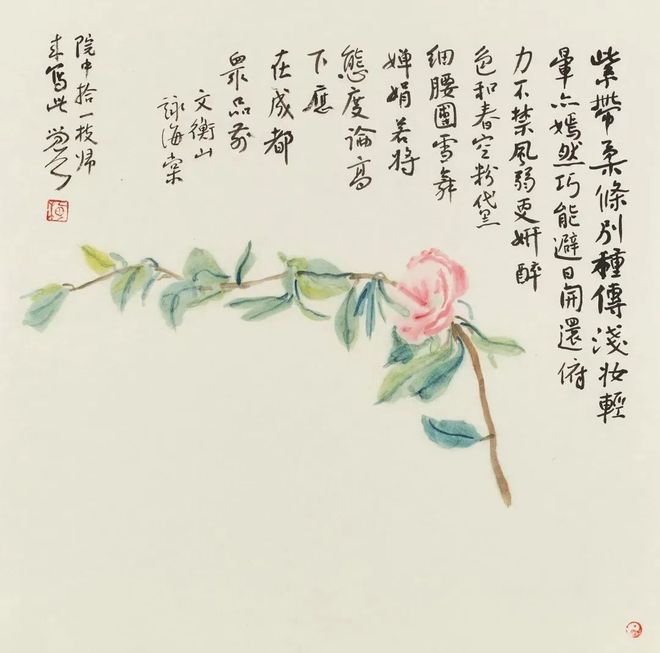 紫帶柔條別種傳淺妆輕
暈亦嫣然巧能避日開還俯
力不禁風弱更妍醉
色和春空粉黛
細腰團雪舞
婵娟若將
態度論高
下應
在成都
眾品前
文衡山
詠海棠
院中拾一枝歸
来寫此